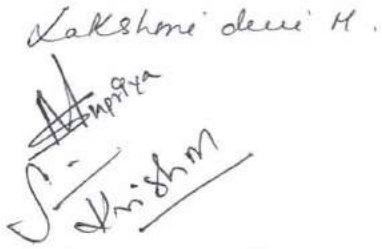 Lakshmi devi M.
Anupriya
S. Krishn